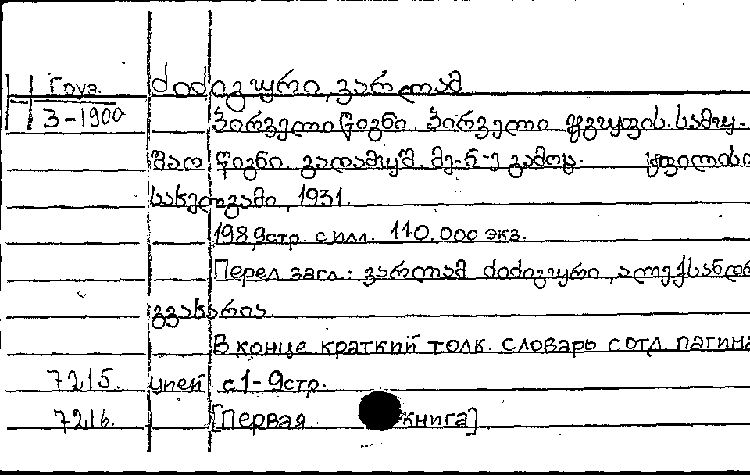 Груз. ძიძიგური, ვარლამ
3-1900 პირველი წიგნი. პირველი ჯგუფის. სამუ-
შაო წიგნი. გადამუშ. მე-5-ე გამოც. ტფილისი
სახელგამი, 1931.
198, 9стр. с илл. 110.000 экз.
Перел загл.: ვარლამ ძიძიგური, ალექსანდრ
გვახარია.
В конце краткий толк. словарь с отд. пагина
7215. цией с 1-9стр.
7216. [Первая книга]